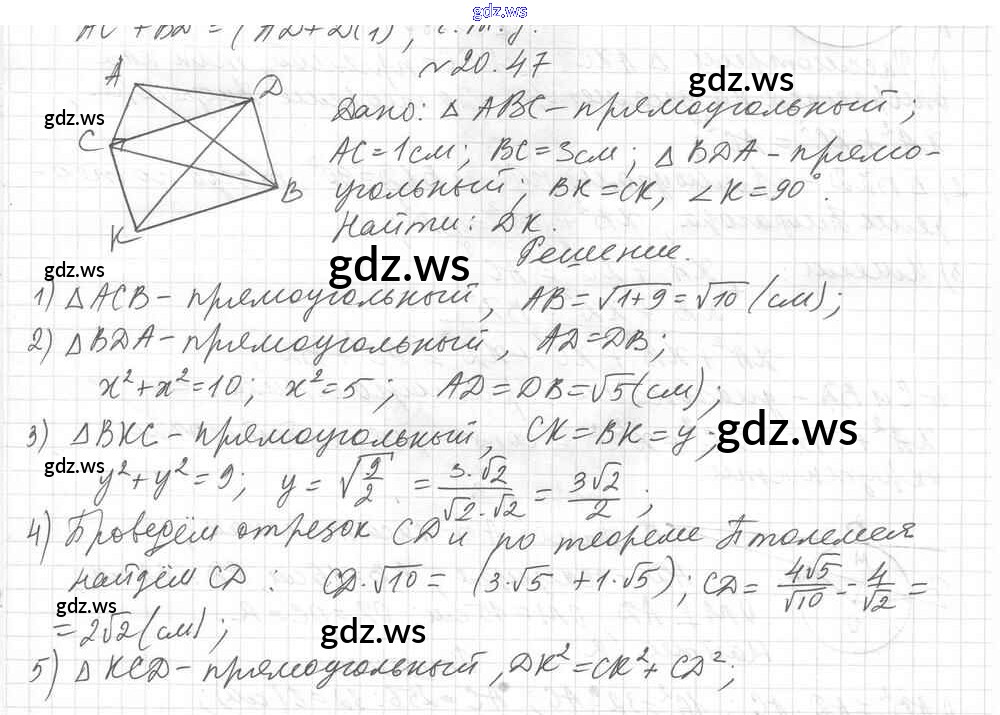 gdz.ws
AC + BD = (AD + DC1), ч.т.д.
№20.47
gdz.ws
A
D
Дано: △ ABC - прямоугольный;
gdz.ws
C
AC = 1 см; BC = 3 см; △ BDA - прямо-
угольный; BK = CK, ∠K = 90°.
B
Найти: DK.
K
Решение.
gdz.ws
gdz.ws
1) △ ACB - прямоугольный, AB = √1+9 = √10 (см);
2) △ BDA - прямоугольный, AD = DB;
x² + x² = 10; x² = 5; AD = DB = √5 (см);
3) △ BKC - прямоугольный, CK = BK = y;
gdz.ws
gdz.ws
y² + y² = 9; y = √9/2 = 3·√2/√2·√2 = 3√2/2;
4) Проведём отрезок CD и по теореме Птолемея
найдём CD: CD·√10 = (3·√5 + 1·√5); CD = 4√5/√10 - 4/√2 =
gdz.ws
= 2√2 (см);
gdz.ws
5) △ KCD - прямоугольный, DK² = CK² + CD²;